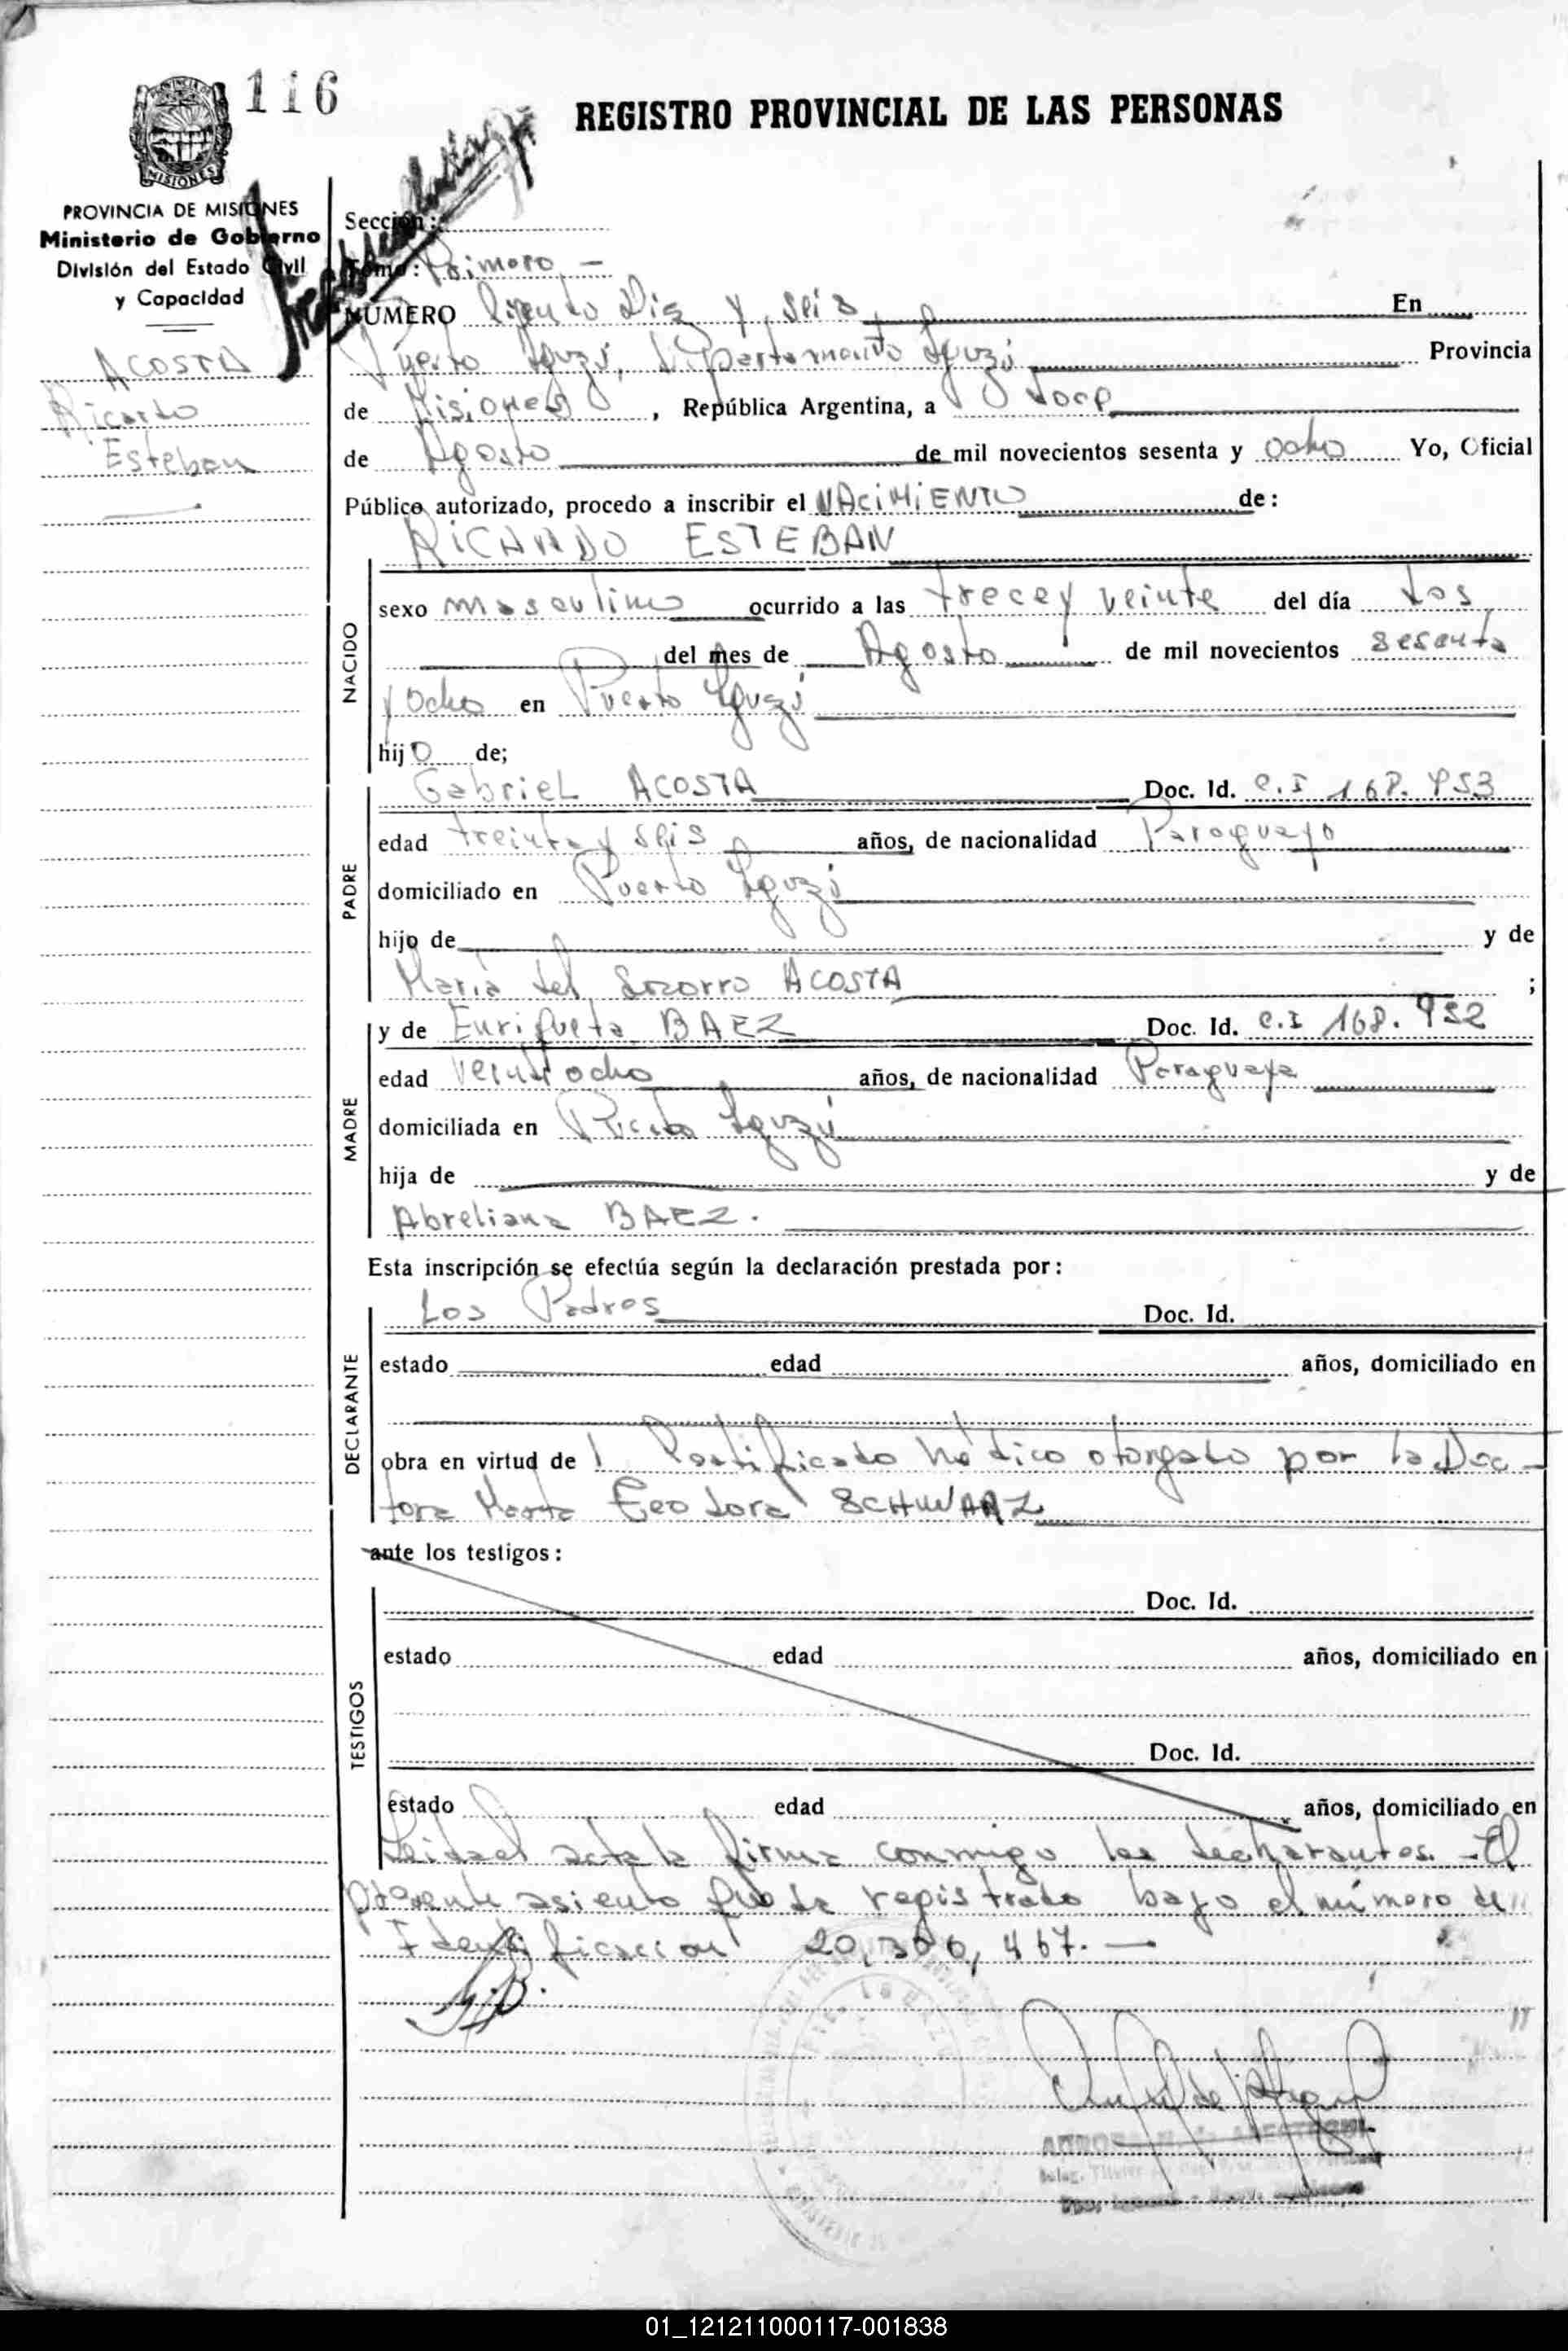 116
REGISTRO PROVINCIAL DE LAS PERSONAS
MISIONES
PROVINCIA DE MISIONES
Ministerio de Gobierno
División del Estado Civil
y Capacidad
ACOSTA
Ricardo
Esteban
Sección:
Tomo: Primero.—
NÚMERO Ciento Diez y seis, En
Puerto Iguazú, Departamento Iguazú Provincia
de Misiones, República Argentina, a doce
de Agosto de mil novecientos sesenta y ocho Yo, Oficial
Público autorizado, procedo a inscribir el NACIMIENTO de:
RICARDO ESTEBAN
NACIDO
sexo masculino ocurrido a las trece y veinte del día dos
del mes de Agosto de mil novecientos sesenta
y ocho en Puerto Iguazú
hijo de;
PADRE
Gabriel ACOSTA Doc. Id. C.I 168.953
edad treinta y seis años, de nacionalidad Paraguayo
domiciliado en Puerto Iguazú
hijo de y de
María del Socorro ACOSTA ;
MADRE
y de Enriqueta BAEZ Doc. Id. C.I 168.952
edad veintiocho años, de nacionalidad Paraguaya
domiciliada en Puerto Iguazú
hija de y de
Abreliana BAEZ.
Esta inscripción se efectúa según la declaración prestada por:
DECLARANTE
Los Padres Doc. Id.
estado edad años, domiciliado en
obra en virtud de l Certificado Médico otorgado por la Doc-
tora Marta Teodora SCHWARZ
ante los testigos:
TESTIGOS
Doc. Id.
estado edad años, domiciliado en
Doc. Id.
estado edad años, domiciliado en
Leida el acta la firma conmigo los declarantes.- El
presente asiento queda registrado bajo el número de
Identificacion 20,300,467.—
01_121211000117-001838